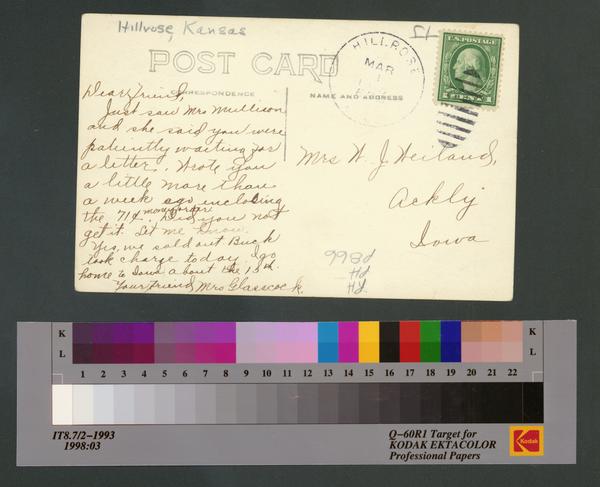 Hillrose, Kansas
POST CARD
CORRESPONDENCE
NAME AND ADDRESS
HILLROSE
MAR
U.S. POSTAGE
Dear Friend,
Just saw Mrs Mullison
and she said you were
patiently waiting for
a letter. Wrote you
a little more than
a week ago including
the 71¢ money order. Did you not
get it. Let me know.
Yes, we sold out Buck
took charge today. I go
home to Iowa about the 15th.
Your Friend, Mrs Glasscock.
Mrs W. J. Weiland,
Ackly
Iowa
RH
PH
P866
K
L
K
L
1 2 3 4 5 6 7 8 9 10 11 12 13 14 15 16 17 18 19 20 21 22
IT8.7/2-1993
1998:03
Q-60R1 Target for
KODAK EKTACOLOR
Professional Papers
Kodak